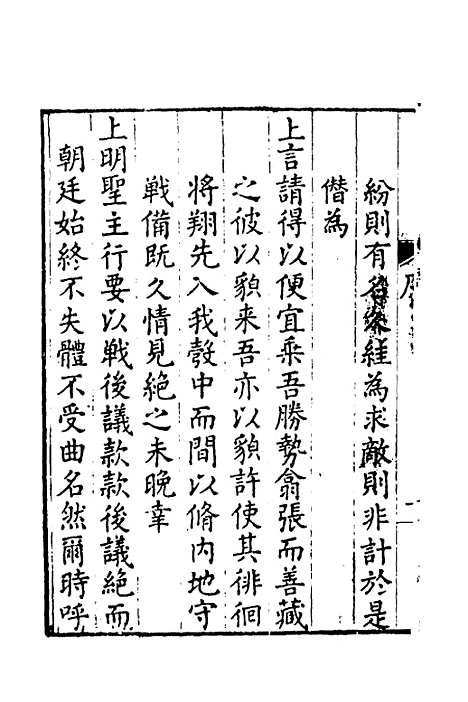 紛則有名於經為求敵則非計於是
僭為
上言請得以便宜乘吾勝勢翕張而善藏
之彼以貌來吾亦以貌許使其徘徊
將翔先入我彀中而間以脩内地守
戰備既久情見絶之未晩幸
上明聖主行要以戰後議款款後議絶而
朝廷始終不失體不受曲名然爾時呼
序
二